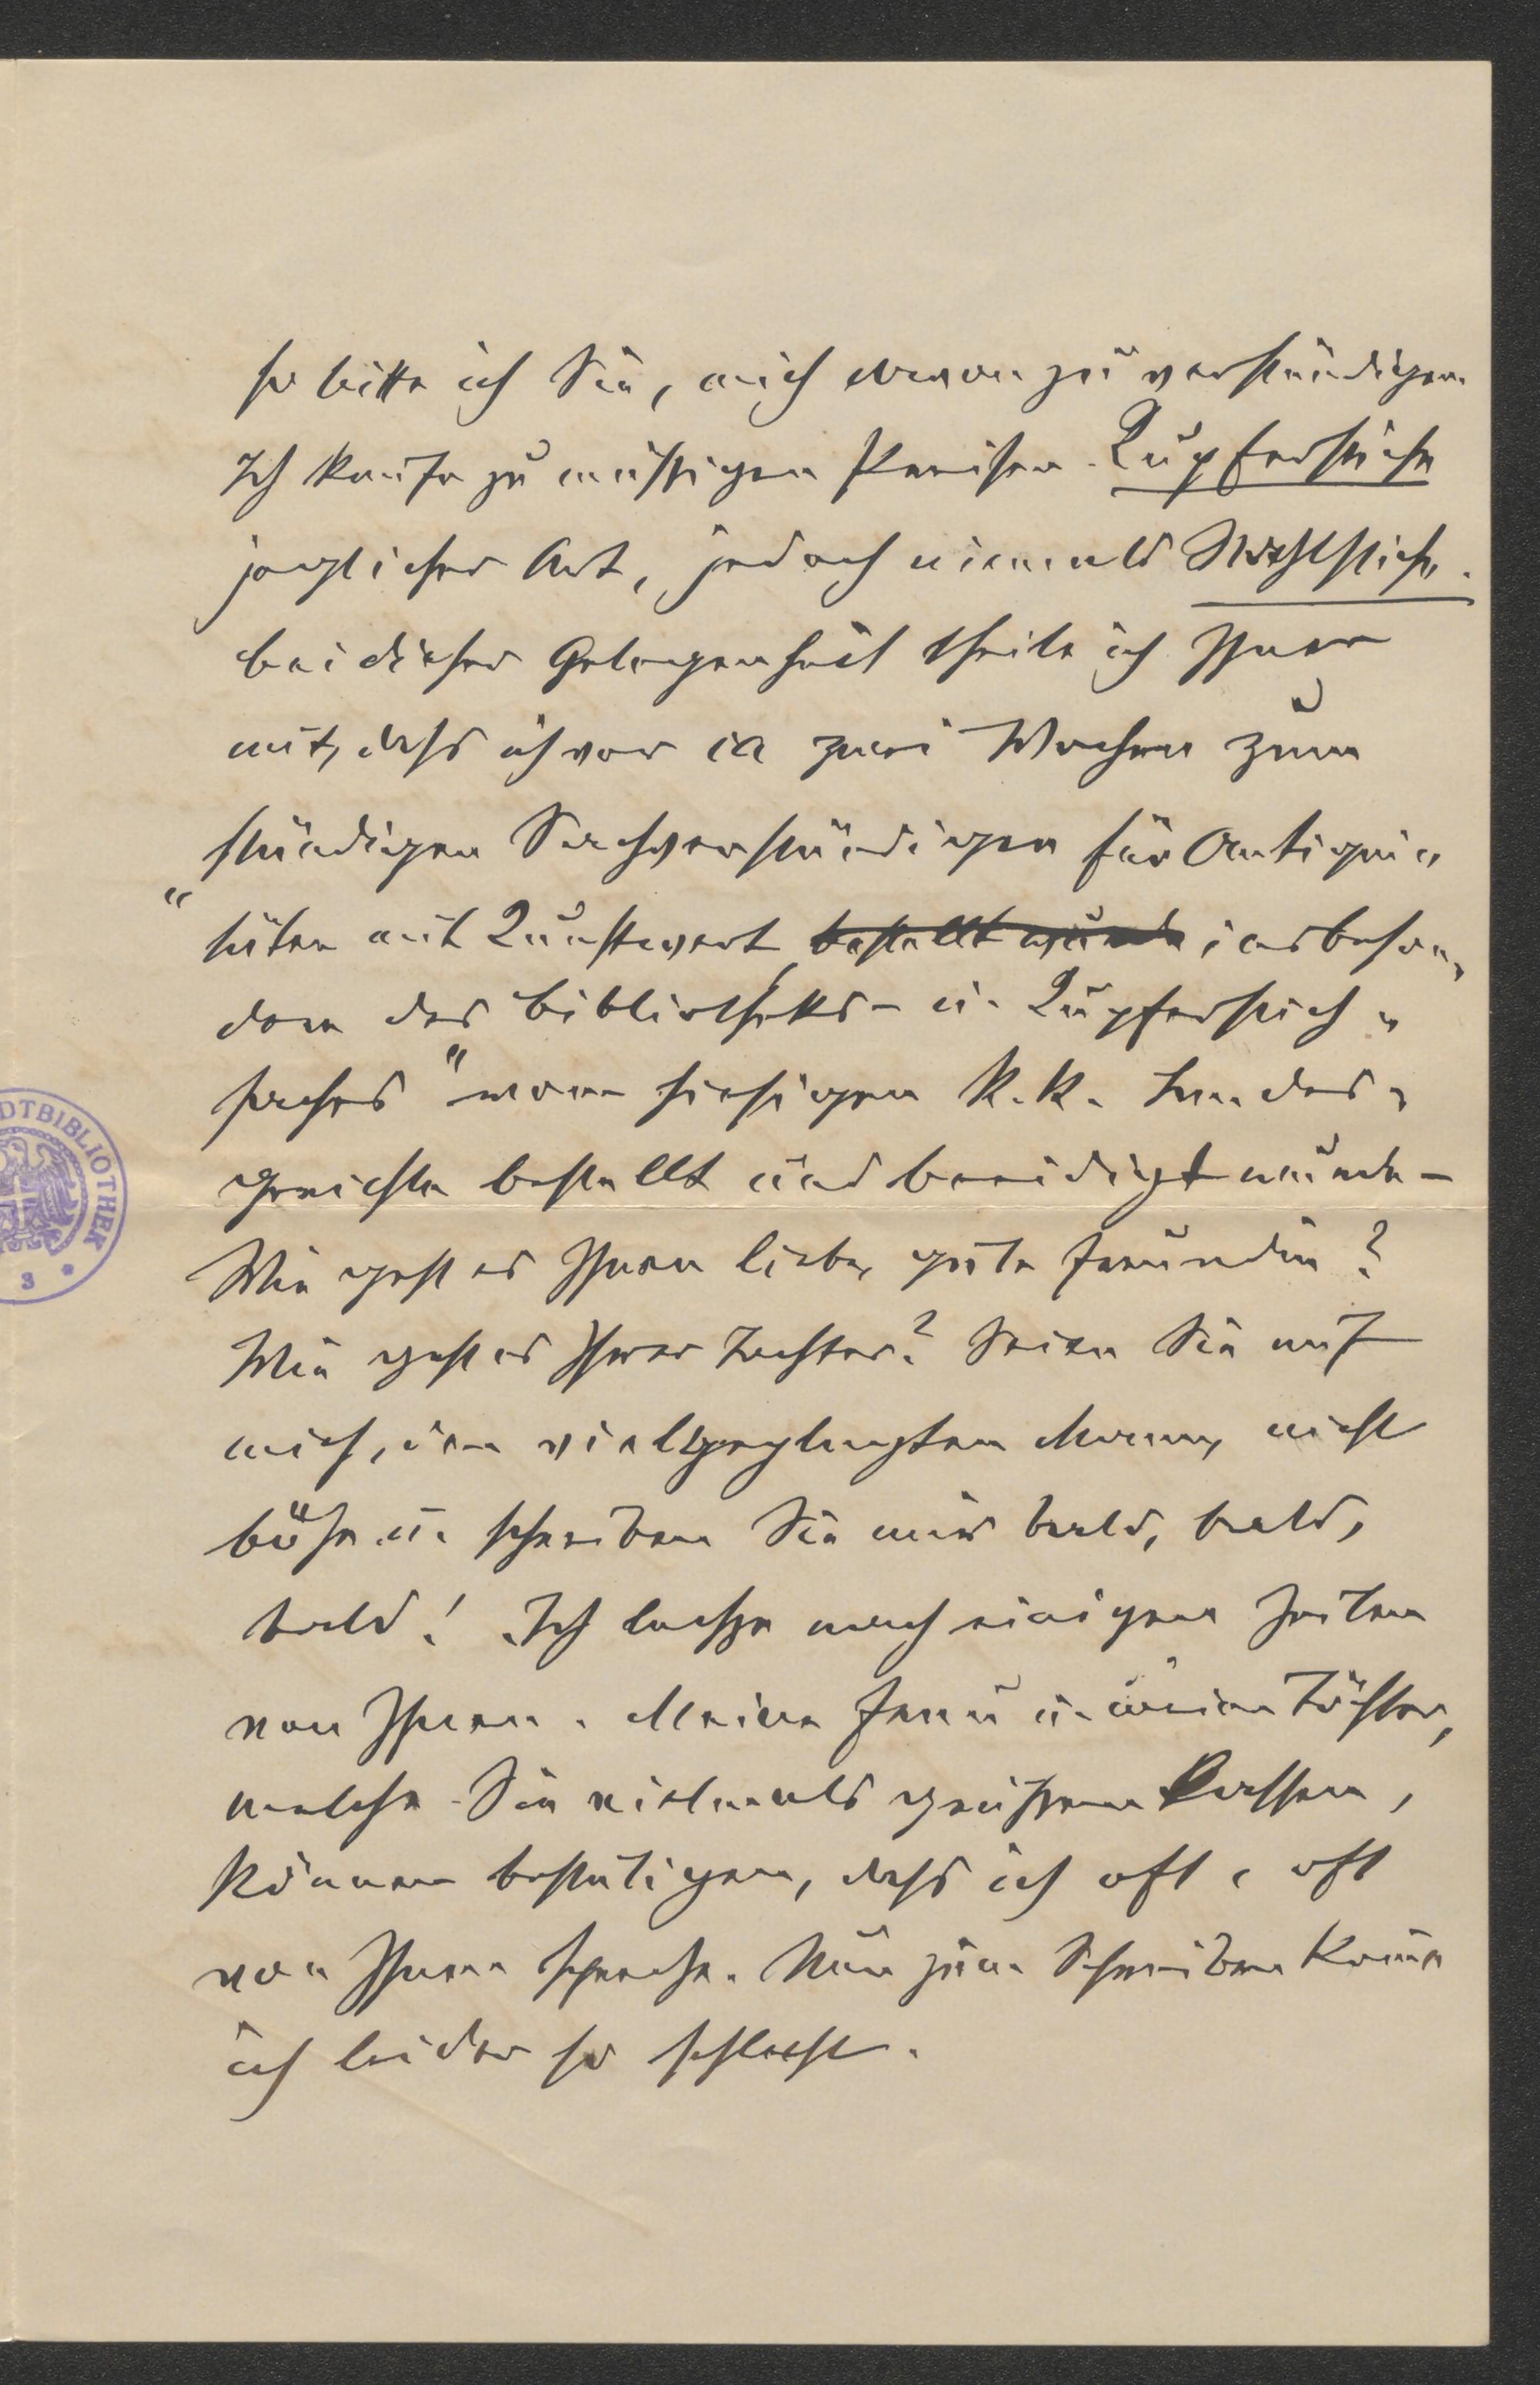 so bitte ich Sie, mich davon zu verständigen.
Ich kaufe zu mässigen Preisen Kupferstiche
jeglicher Art, jedoch niemals Stahlstiche.
bei dieser Gelegenheit theile ich Ihnen
mit, dass ich vor ca zwei Wochen zum
ständigen Sachverständigen für Antiqui„
"täten mit Kunstwert, bestellt wurde insbeson„
dere des Bibliotheks- u. Kupferstich„
faches" vom hiesigen k. k. Landes„
gerichte bestellt und beeidigt wurde –
Wie geht es Ihnen liebe, gute Freundin?
Wie geht es Ihrer Tochter? Seien Sie auf
mich, den vielgeplagten Mann, nicht
böse u. schreiben Sie mir bald, bald,
bald! Ich lechze nach einigen Zeilen
von Ihnen. Meine Frau u. meine Töchter,
welche Sie vielmals grüßen lassen,
können bestätigen, dass ich oft, oft
von Ihnen spreche. Nur zum Schreiben kome
ich leider so schlecht.
DTBIBLIOTHEK
3